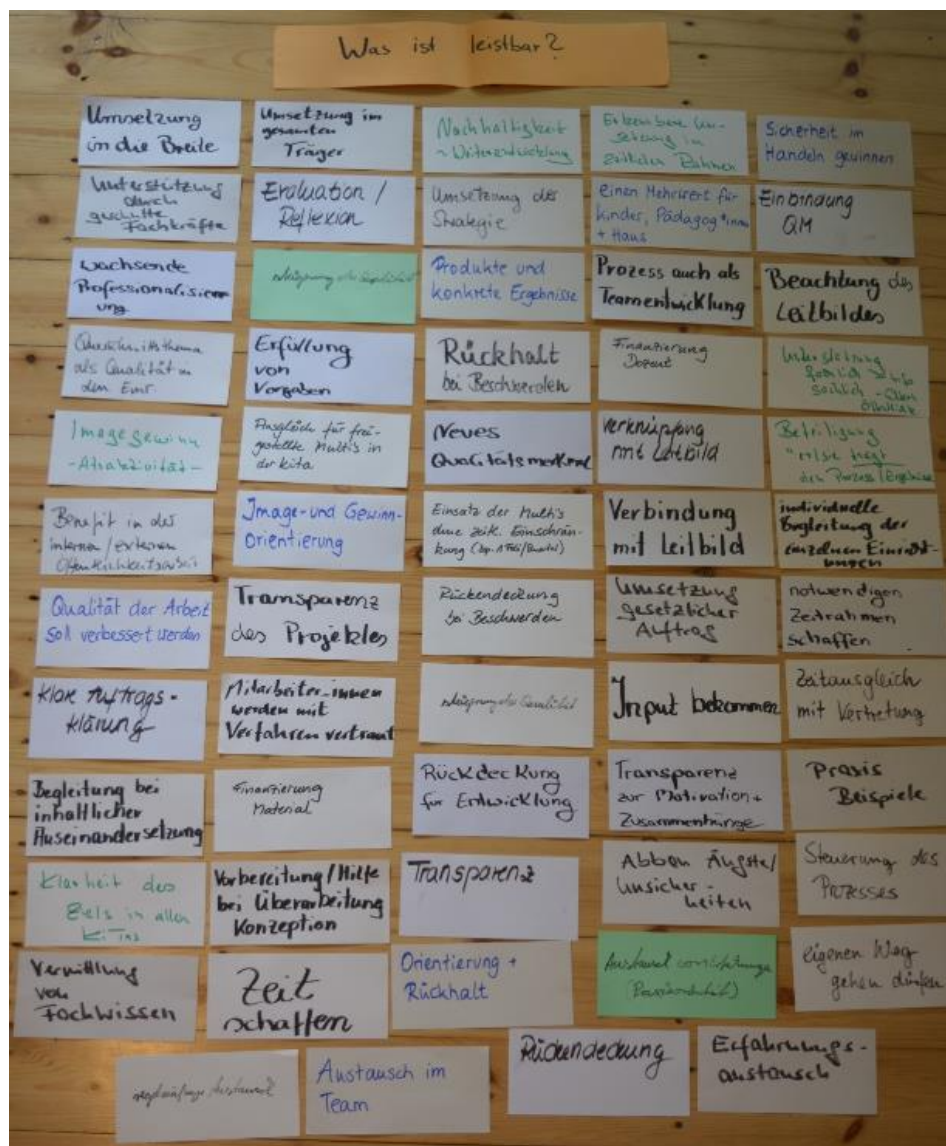 Was ist leistbar?
Umsetzung
in die Breite
Umsetzung im
gesamten
Träger
Nachhaltigkeit
~ Weiterentwicklung
Erkennbare Um-
setzung in
zeitlichen Rahmen
Sicherheit im
Handeln gewinnen
Unterstützung
durch
geschulte
Fachkräfte
Evaluation /
Reflexion
Umsetzung der
Strategie
einen Mehrwert für
Kinder, Pädagog*innen
+ Haus
Einbindung
QM
wachsende
Professionalisier-
ung
der Qualität
Produkte und
konkrete Ergebnisse
Prozess auch als
Teamentwicklung
Beachtung des
Leitbildes
Querschnittsthema
als Qualität in
den Einr.
Erfüllung
von
Vorgaben
Rückhalt
bei Beschwerden
Finanzierung
Dozent
Unterstützung
fachlich
Imagegewinn
- Attraktivität -
Ausgleich für frei-
gestellte Multis in
der Kita
Neues
Qualitätsmerkmal
Verknüpfung
mit Leitbild
Beteiligung
trägt
den Prozess/Ergebnisse
Benefit in der
internen/externen
Öffentlichkeitsarbeit
Image- und Gewinn-
Orientierung
Einsatz der Multis
ohne zeitl. Einschrän-
kung
Verbindung
mit Leitbild
individuelle
Begleitung der
einzelnen Einricht-
ungen
Qualität der Arbeit
soll verbessert werden
Transparenz
des Projektes
Rückendeckung
bei Beschwerden
Umsetzung
gesetzlicher
Auftrag
notwendigen
Zeitrahmen
schaffen
Klare Auftrags-
klärung
Mitarbeiter_innen
werden mit
Verfahren vertraut
der Qualität
Input bekommen
Zeitausgleich
mit Vertretung
Begleitung bei
inhaltlicher
Auseinandersetzung
Finanzierung
Material
Rückdeckung
für Entwicklung
Transparenz
zur Motivation +
Zusammenhänge
Praxis
Beispiele
Klarheit des
Ziels in allen
KiTas
Vorbereitung/Hilfe
bei Überarbeitung
Konzeption
Transparenz
Abbau Ängste/
Unsicher-
heiten
Steuerung des
Prozesses
Vermittlung
von
Fachwissen
Zeit
schaffen
Orientierung +
Rückhalt
Austausch
eigenen Weg
gehen dürfen
Austausch
Austausch im
Team
Rückendeckung
Erfahrungs-
austausch